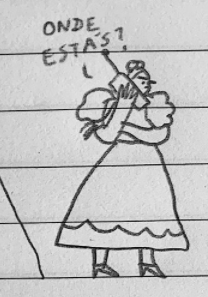 ONDE
ESTÁS?